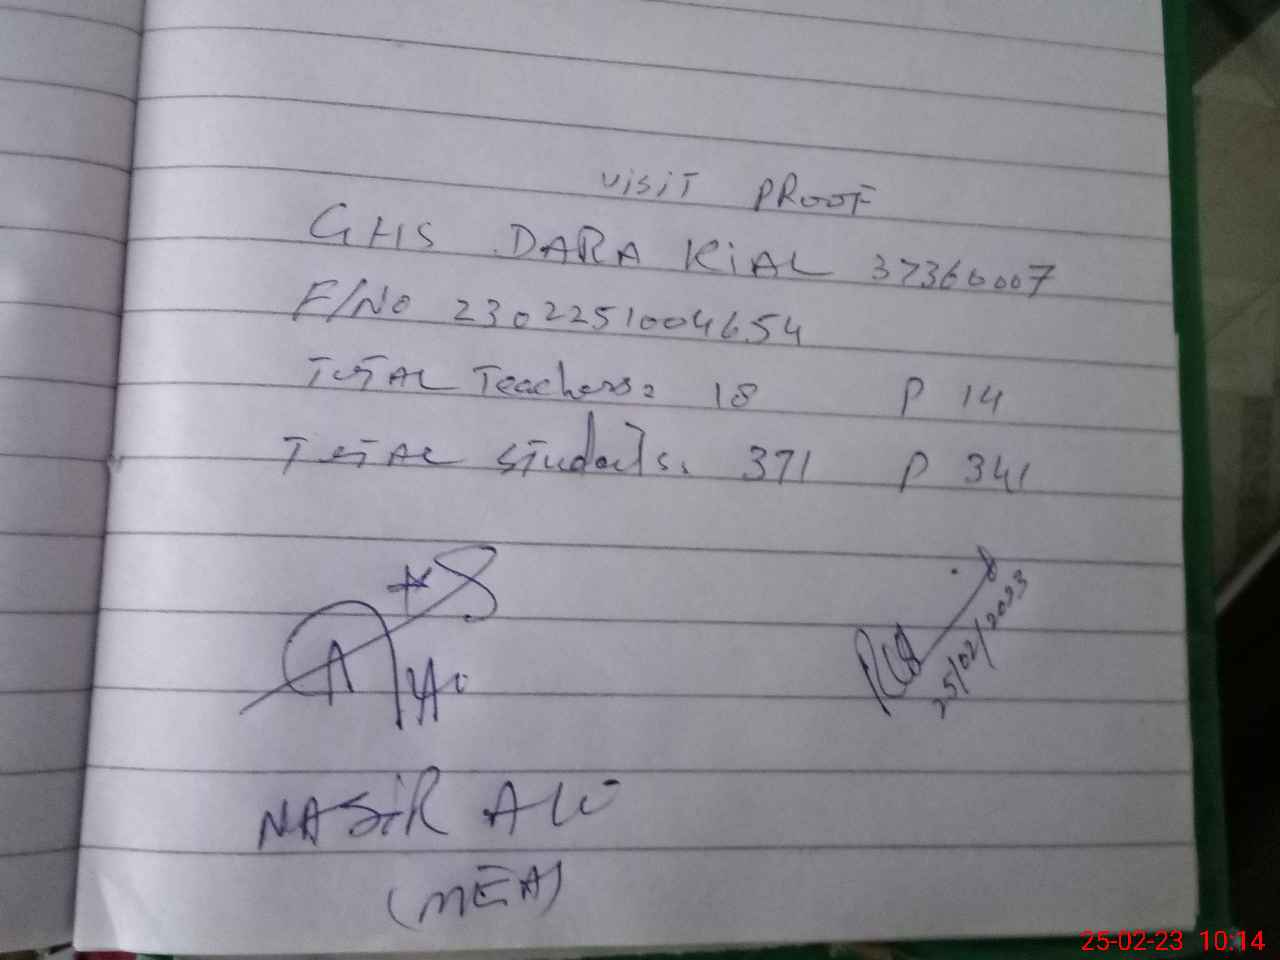 Visit PRooF
GHS DARA KiAL 37360007
F/No 2302251004654
ToTAL Teachers: 18 P 14
ToTAL Students: 371 P 341
25/02/2023
NASiR ALi
(MEA)
25-02-23 10:14